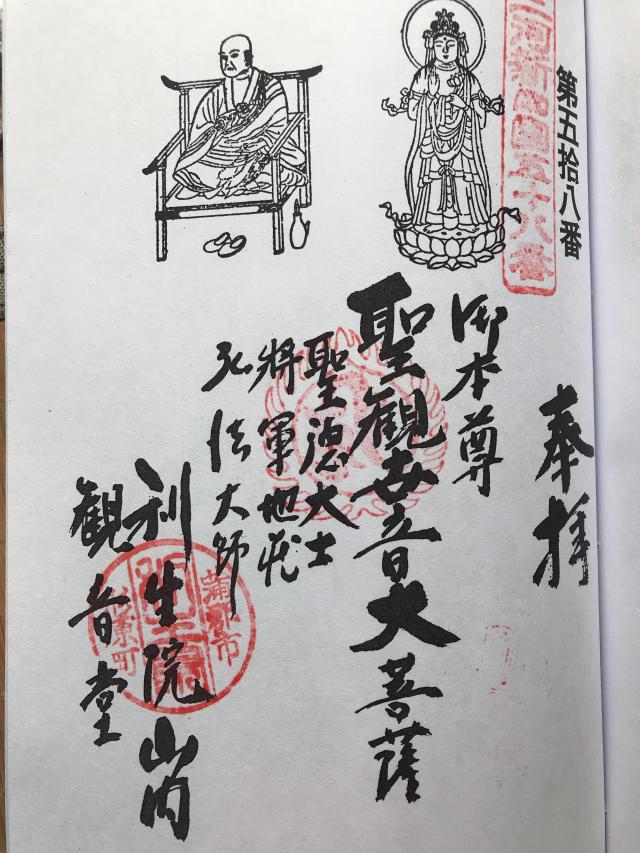 第五拾八番
三河新四國五十八番
奉拝
御本尊
聖觀世音大菩薩
聖徳大士
將軍地蔵
弘法大師
利生院山内
觀音堂
蒲郡市
形原町